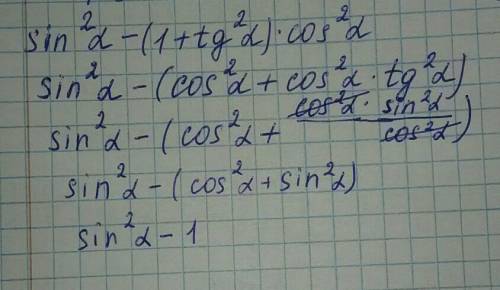 sin²α − (1 + tg²α) · cos²α
sin²α − (cos²α + cos²α · tg²α)
sin²α − (cos²α + cos²α · sin²α / cos²α)
sin²α − (cos²α + sin²α)
sin²α − 1